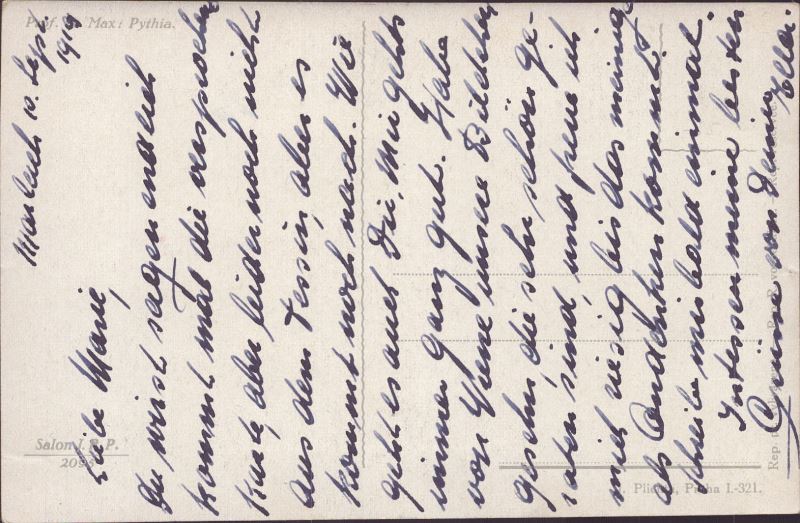 Prof. Max: Pythia.
Marbach 10. Sept.
1919
Liebe Marie,
Du wirst sagen endlich
kommt mal die versprochene
Karte, aber leider noch nicht
aus dem Tessin, aber es
kommt noch nach. Wie
geht es auch Dir, Mir gehts
immer ganz gut. Habe
von Irene unsere Bildchen
gesehn, die sehr schön ge-
raten sind, und freue ich
mich riesig bis das meinige
als Andenken kommt.
schreibe mir bald einmal.
Intessen meine besten
Grüsse von Deiner Ella.
Salon J. P. P.
2093
Praha I.-321.
Rep.